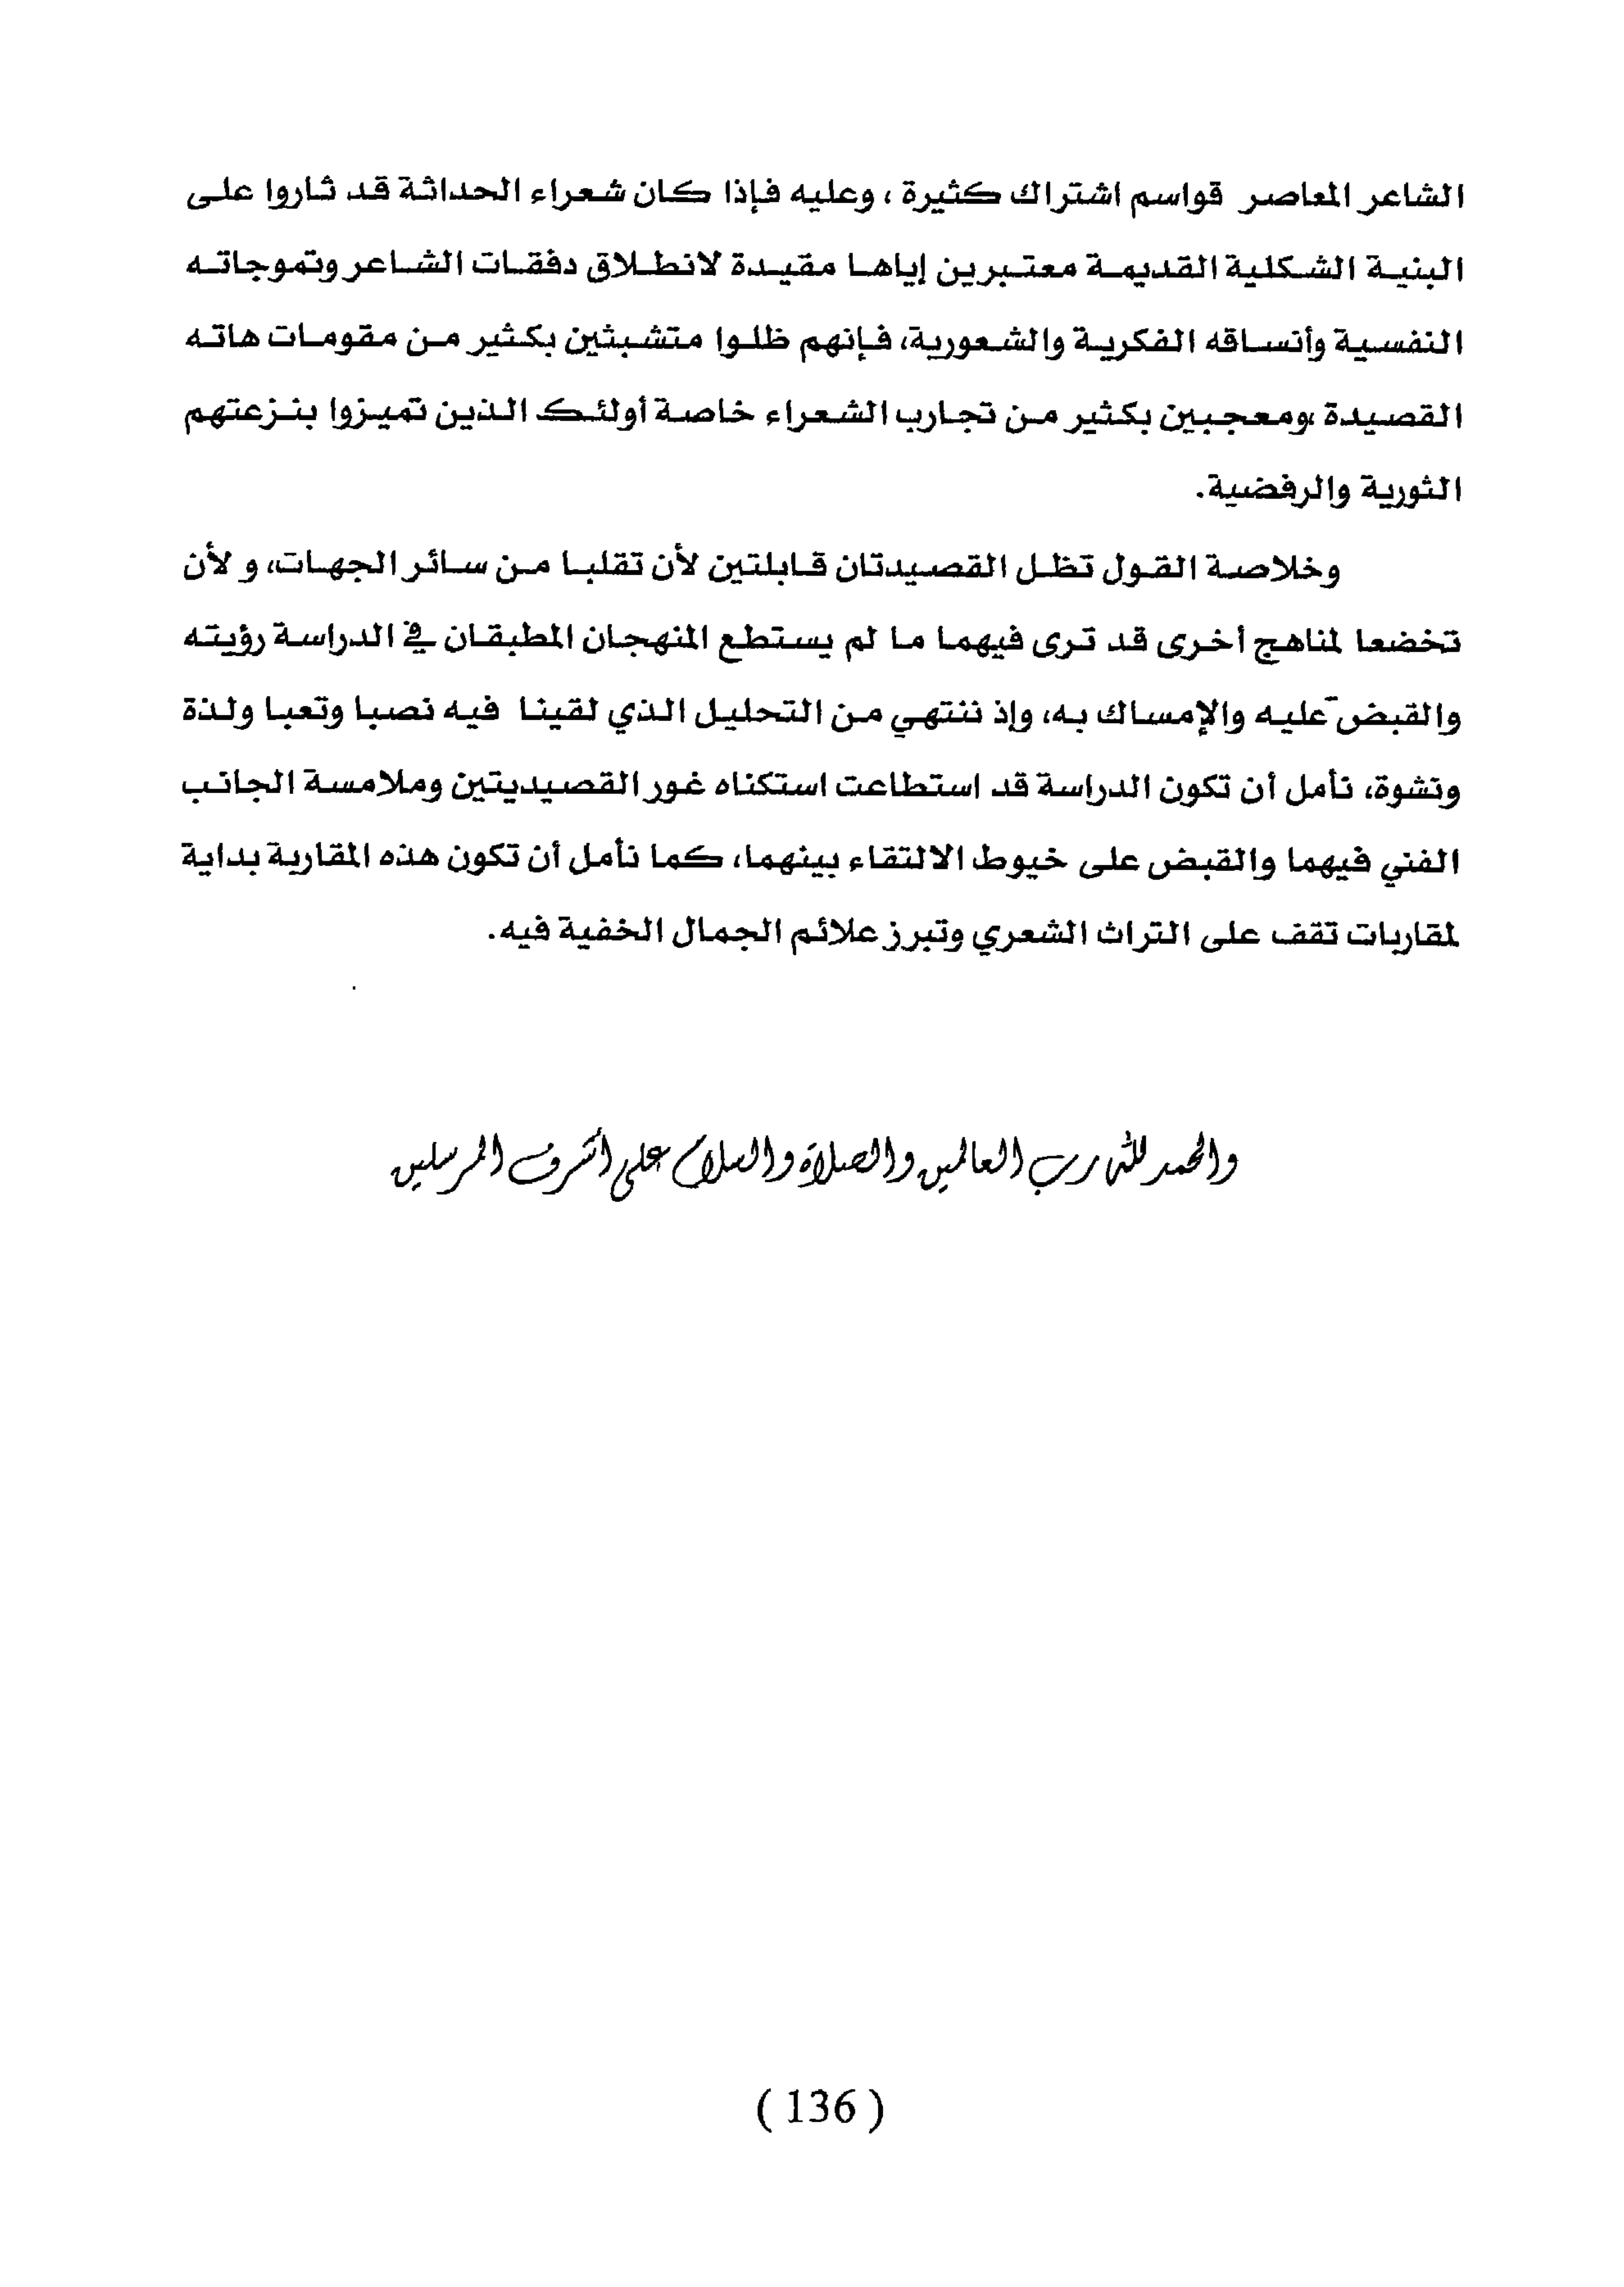 الشاعر المعاصر قواسم اشتراك كثيرة ، وعليه فإذا كان شعراء الحداثة قد ثاروا على
البنية الشكلية القديمة معتبرين إياها مقيدة لانطلاق دفقات الشاعر وتموجاته
النفسية وأنساقه الفكرية والشعورية، فإنهم ظلوا متشبثين بكثير من مقومات هاته
القصيدة ،ومعجبين بكثير من تجارب الشعراء خاصة أولئك الذين تميزوا بنزعتهم
الثورية والرفضية.
وخلاصة القول تظل القصيدتان قابلتين لأن تقلبا من سائر الجهات، و لأن
تخضعا لمناهج أخرى قد ترى فيهما ما لم يستطع المنهجان المطبقان في الدراسة رؤيته
والقبض عليه والإمساك به، وإذ ننتهي من التحليل الذي لقينا فيه نصبا وتعبا ولذة
ونشوة، نأمل أن تكون الدراسة قد استطاعت استكناه غور القصيديتين وملامسة الجانب
الفني فيهما والقبض على خيوط الالتقاء بينهما، كما نأمل أن تكون هذه المقاربة بداية
لمقاربات تقف على التراث الشعري وتبرز علائم الجمال الخفية فيه.
والحمد لله رب العالمين والصلاة والسلام على أشرف المرسلين
( 136 )